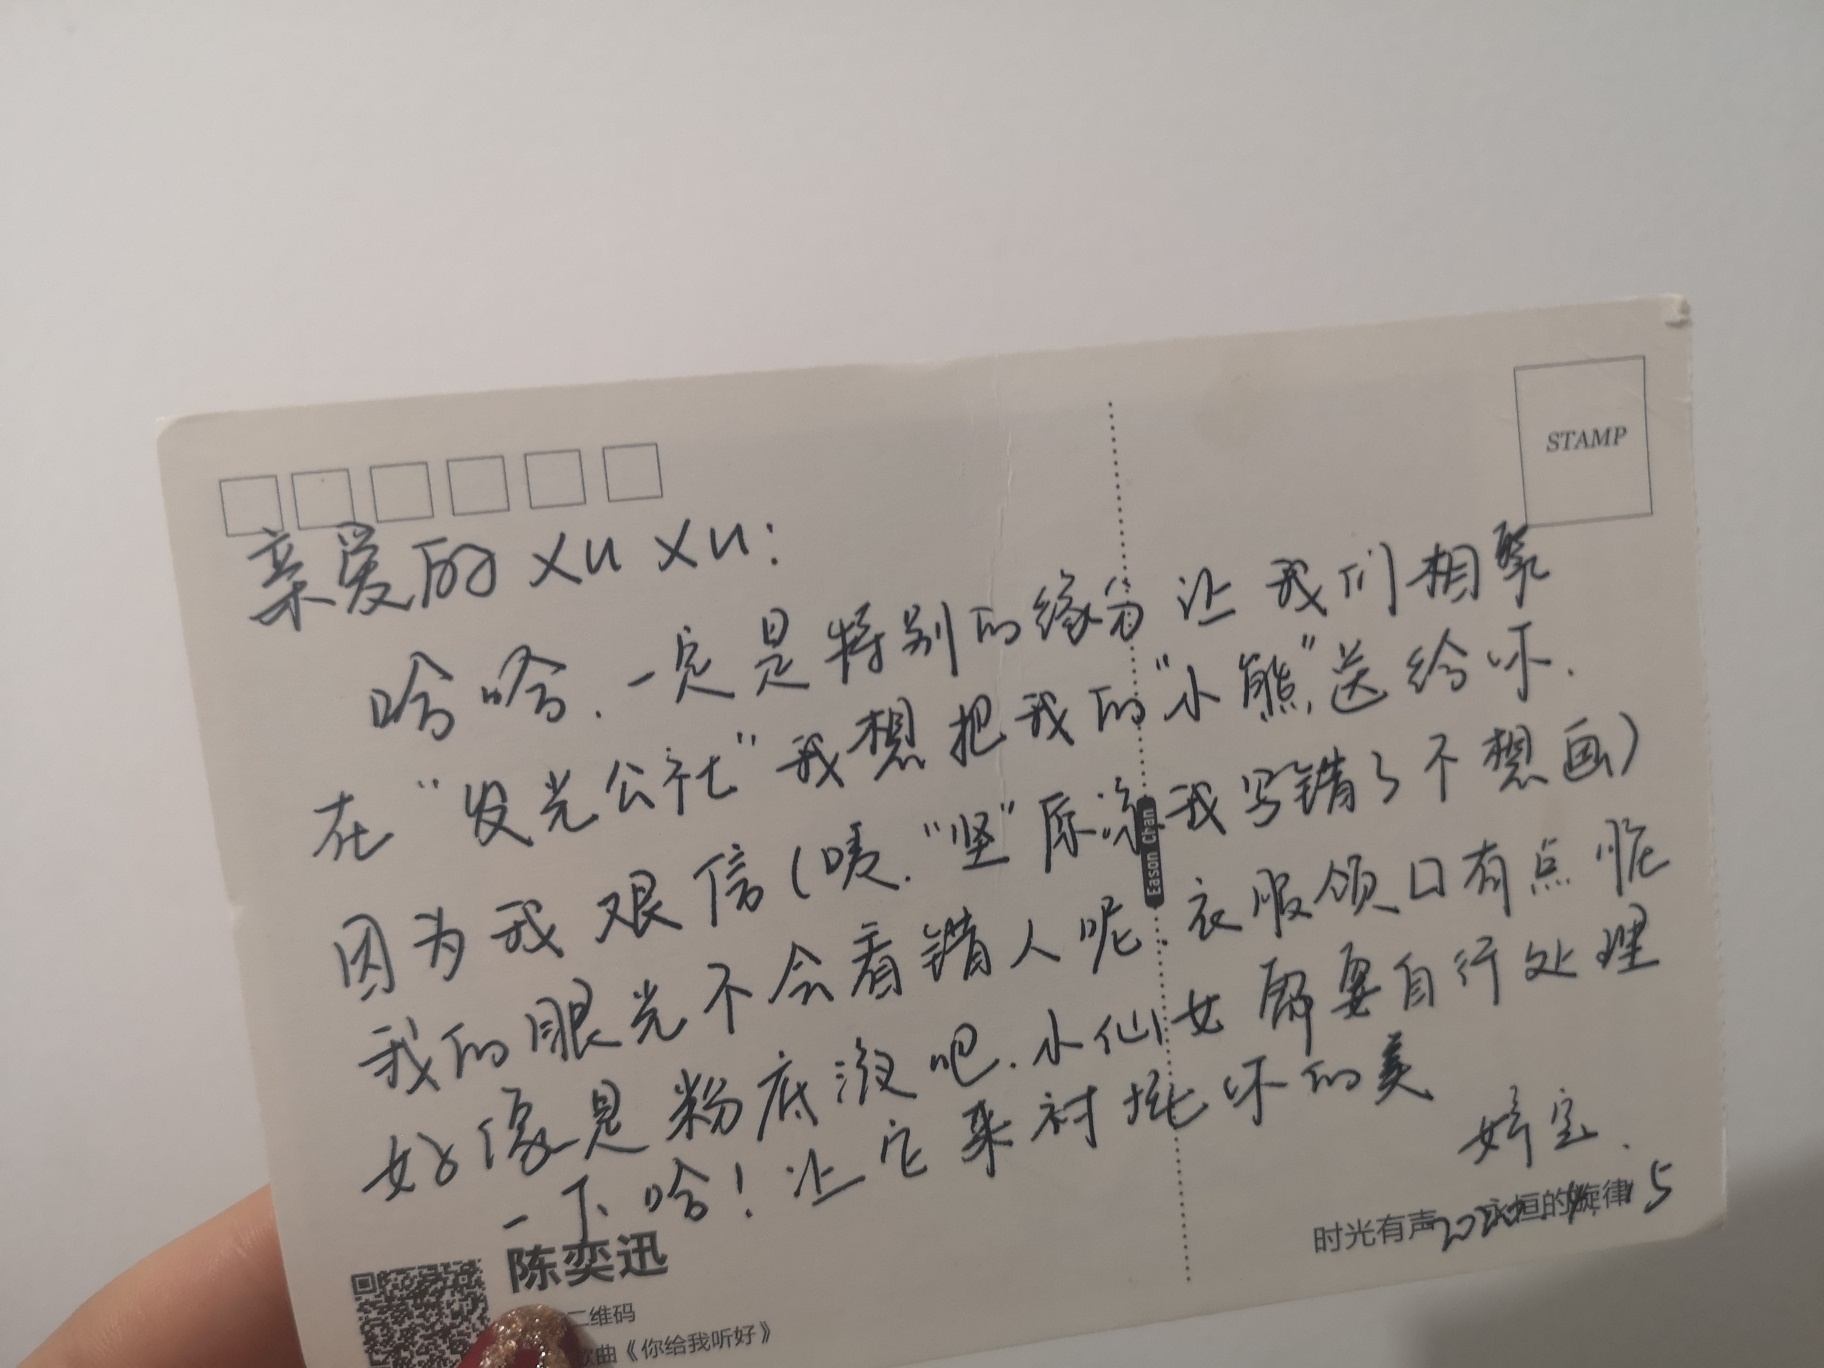 STAMP
亲爱的 XU XU:
哈哈.一定是特别的缘分让我们相聚
在“发光公社”我想把我的“小熊”送给你.
因为我艰信(啧.“坚”原谅我写错了不想画)
我的眼光不会看错人呢.衣服领口有点脏
好像是粉底液吧.小仙女需要自行处理
一下哈!让它来衬托你的美
婷宝.
Eason Chan
时光有声 永恒的旋律
陈奕迅
二维码
歌曲《你给我听好》